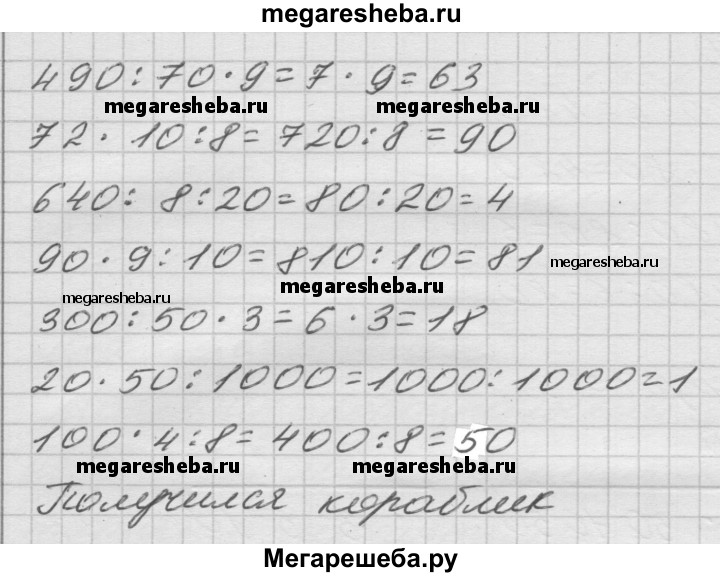 megaresheba.ru
490:70·9=7·9=63
megaresheba.ru megaresheba.ru
72·10:8=720:8=90
640:8:20=80:20=4
90·9:10=810:10=81 megaresheba.ru
megaresheba.ru megaresheba.ru
300:50·3=6·3=18
20·50:1000=1000:1000=1
100·4:8=400:8=50
megaresheba.ru megaresheba.ru
Получился кораблик
Мегарешеба.ру